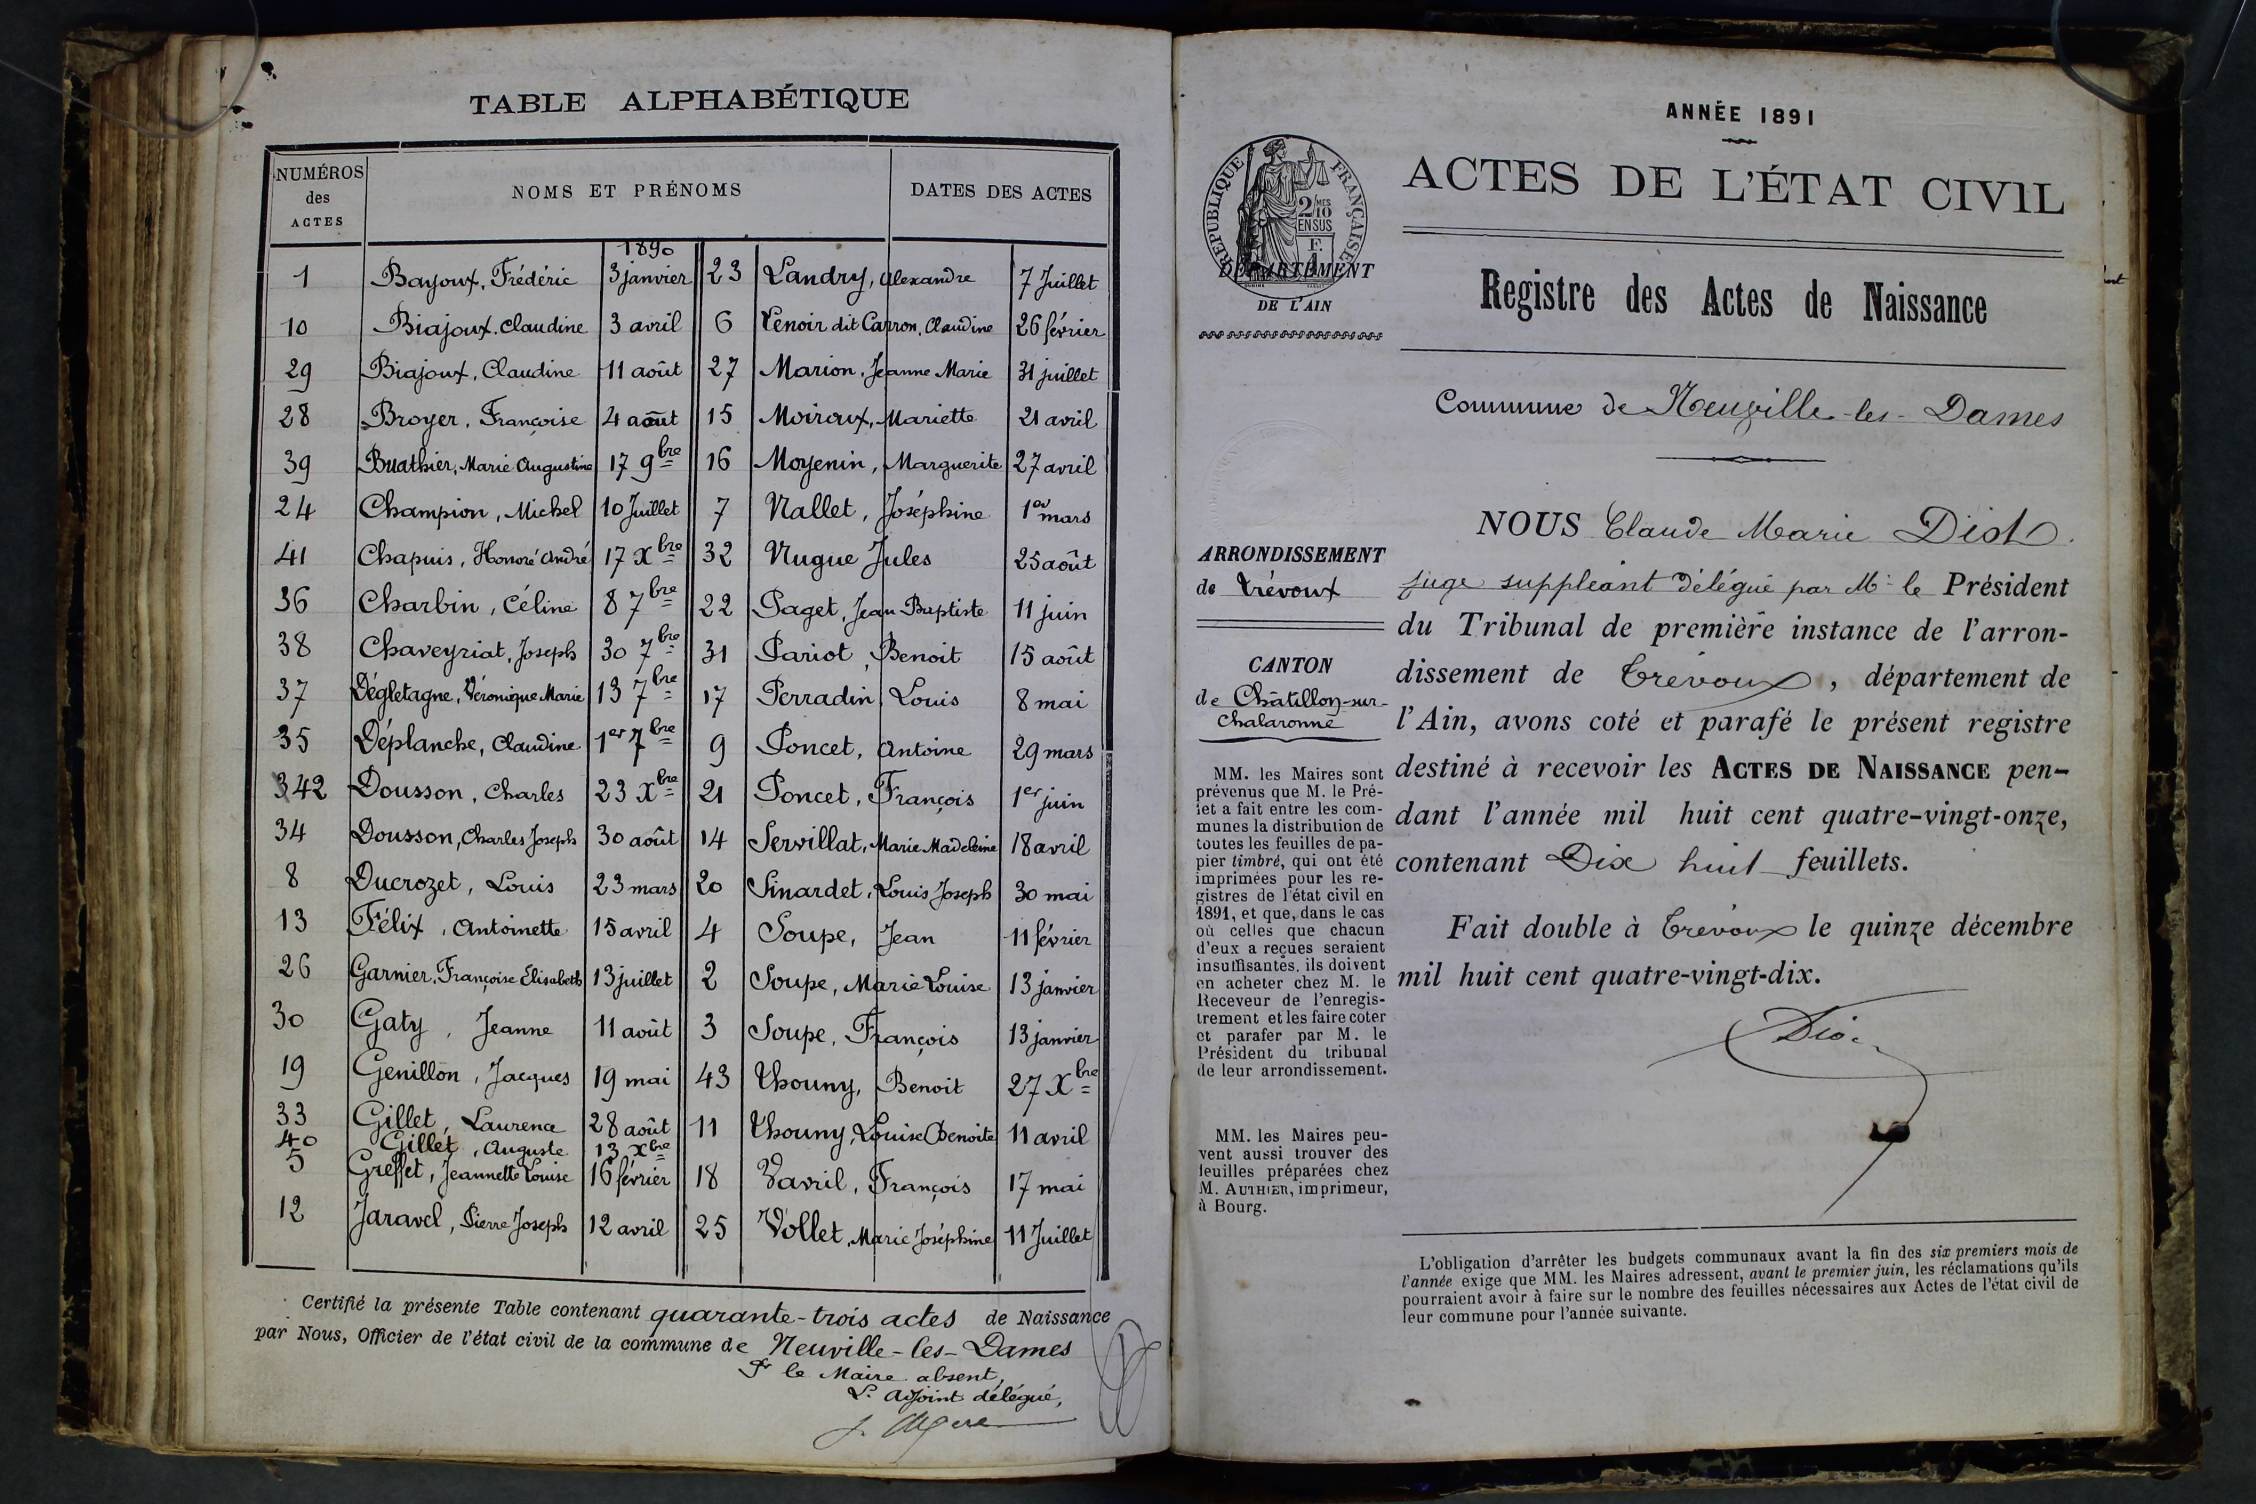 TABLE ALPHABÉTIQUE
NUMÉROS des ACTES
NOMS ET PRÉNOMS
DATES DES ACTES
1890
1 Bayoux, Frédéric 3 janvier
10 Biajoux, Claudine 3 avril
29 Biajoux, Claudine 11 août
28 Broyer, Françoise 4 août
39 Buathier, Marie Augustine 17 9bre
24 Champion, Michel 10 Juillet
41 Chapuis, Honoré André 17 Xbre
36 Charbin, Céline 8 7bre
38 Chaveyriat, Joseph 30 7bre
37 Dégletagne, Véronique Marie 13 7bre
35 Déplanche, Claudine 1er 7bre
342 Dousson, Charles 23 Xbre
34 Dousson, Charles Joseph 30 août
8 Ducrozet, Louis 23 mars
13 Félix, Antoinette 15 avril
26 Garnier, Françoise Élisabeth 13 juillet
30 Gaty, Jeanne 11 août
19 Genillon, Jacques 19 mai
33 Gillet, Laurence 28 août
40 Gillet, Auguste 13 Xbre
5 Greffet, Jeannette Louise 16 février
12 Jaravel, Pierre Joseph 12 avril
23 Landry, Alexandre 7 Juillet
6 Lenoir dit Carron, Claudine 26 février
27 Marion, Jeanne Marie 31 juillet
15 Moiroux, Mariette 21 avril
16 Moyenin, Marguerite 27 avril
7 Nallet, Joséphine 1er mars
32 Nugue Jules 25 août
22 Paget, Jean Baptiste 11 juin
31 Pariot, Benoit 15 août
17 Perradin, Louis 8 mai
9 Poncet, Antoine 29 mars
21 Poncet, François 1er juin
14 Servillat, Marie Madeleine 18 avril
20 Sinardet, Louis Joseph 30 mai
4 Soupe, Jean 11 février
2 Soupe, Marie Louise 13 janvier
3 Soupe, François 13 janvier
43 Thouny, Benoit 27 Xbre
11 Thouny, Louise Benoite 11 avril
18 Vavril, François 17 mai
25 Vollet, Marie Joséphine 11 Juillet
Certifié la présente Table contenant quarante-trois actes de Naissance
par Nous, Officier de l'état civil de la commune de Neuville-les-Dames
Pr le Maire absent,
L. adjoint délégué,
ANNÉE 1891
RÉPUBLIQUE FRANÇAISE
2/10 MES
EN SUS
F.
DÉPARTEMENT
DE L'AIN
ACTES DE L'ÉTAT CIVIL
Registre des Actes de Naissance
Commune de Neuville-les-Dames
ARRONDISSEMENT
de Trévoux
CANTON
de Châtillon-sur-
Chalaronne
MM. les Maires sont
prévenus que M. le Pré-
fet a fait entre les com-
munes la distribution de
toutes les feuilles de pa-
pier timbré, qui ont été
imprimées pour les re-
gistres de l'état civil en
1891, et que, dans le cas
où celles que chacun
d'eux a reçues seraient
insuffisantes, ils doivent
en acheter chez M. le
Receveur de l'enregis-
trement et les faire coter
et parafer par M. le
Président du tribunal
de leur arrondissement.
MM. les Maires peu-
vent aussi trouver des
feuilles préparées chez
M. AUTHIER, imprimeur,
à Bourg.
NOUS Claude Marie Diot
juge suppléant délégué par Mr le Président
du Tribunal de première instance de l'arron-
dissement de Trévoux, département de
l'Ain, avons coté et parafé le présent registre
destiné à recevoir les ACTES DE NAISSANCE pen-
dant l'année mil huit cent quatre-vingt-onze,
contenant Dix huit feuillets.
Fait double à Trévoux le quinze décembre
mil huit cent quatre-vingt-dix.
L'obligation d'arrêter les budgets communaux avant la fin des six premiers mois de
l'année exige que MM. les Maires adressent, avant le premier juin, les réclamations qu'ils
pourraient avoir à faire sur le nombre des feuilles nécessaires aux Actes de l'état civil de
leur commune pour l'année suivante.